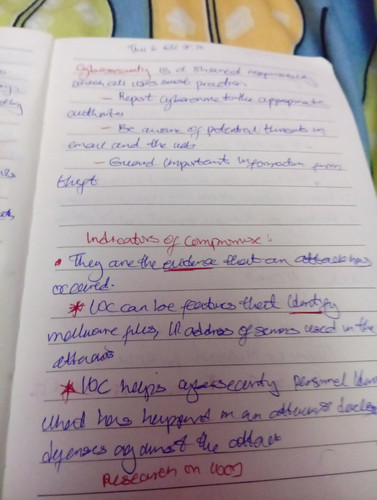 Cybersecurity is a shared responsibility
which all users must practice
— Report cybercrime to the appropriate
authorities
— Be aware of potential threats in
email and the web
— Guard importants information from
theft
Indicators of compromise :
• They are the evidence that an attack has
occured.
* IOC can be features that identify
malware files, IP address of servers used in the
attacks
* IOC helps cybersecurity personnel
what has happened in an attack
defenses against the attack
Research on IOCs